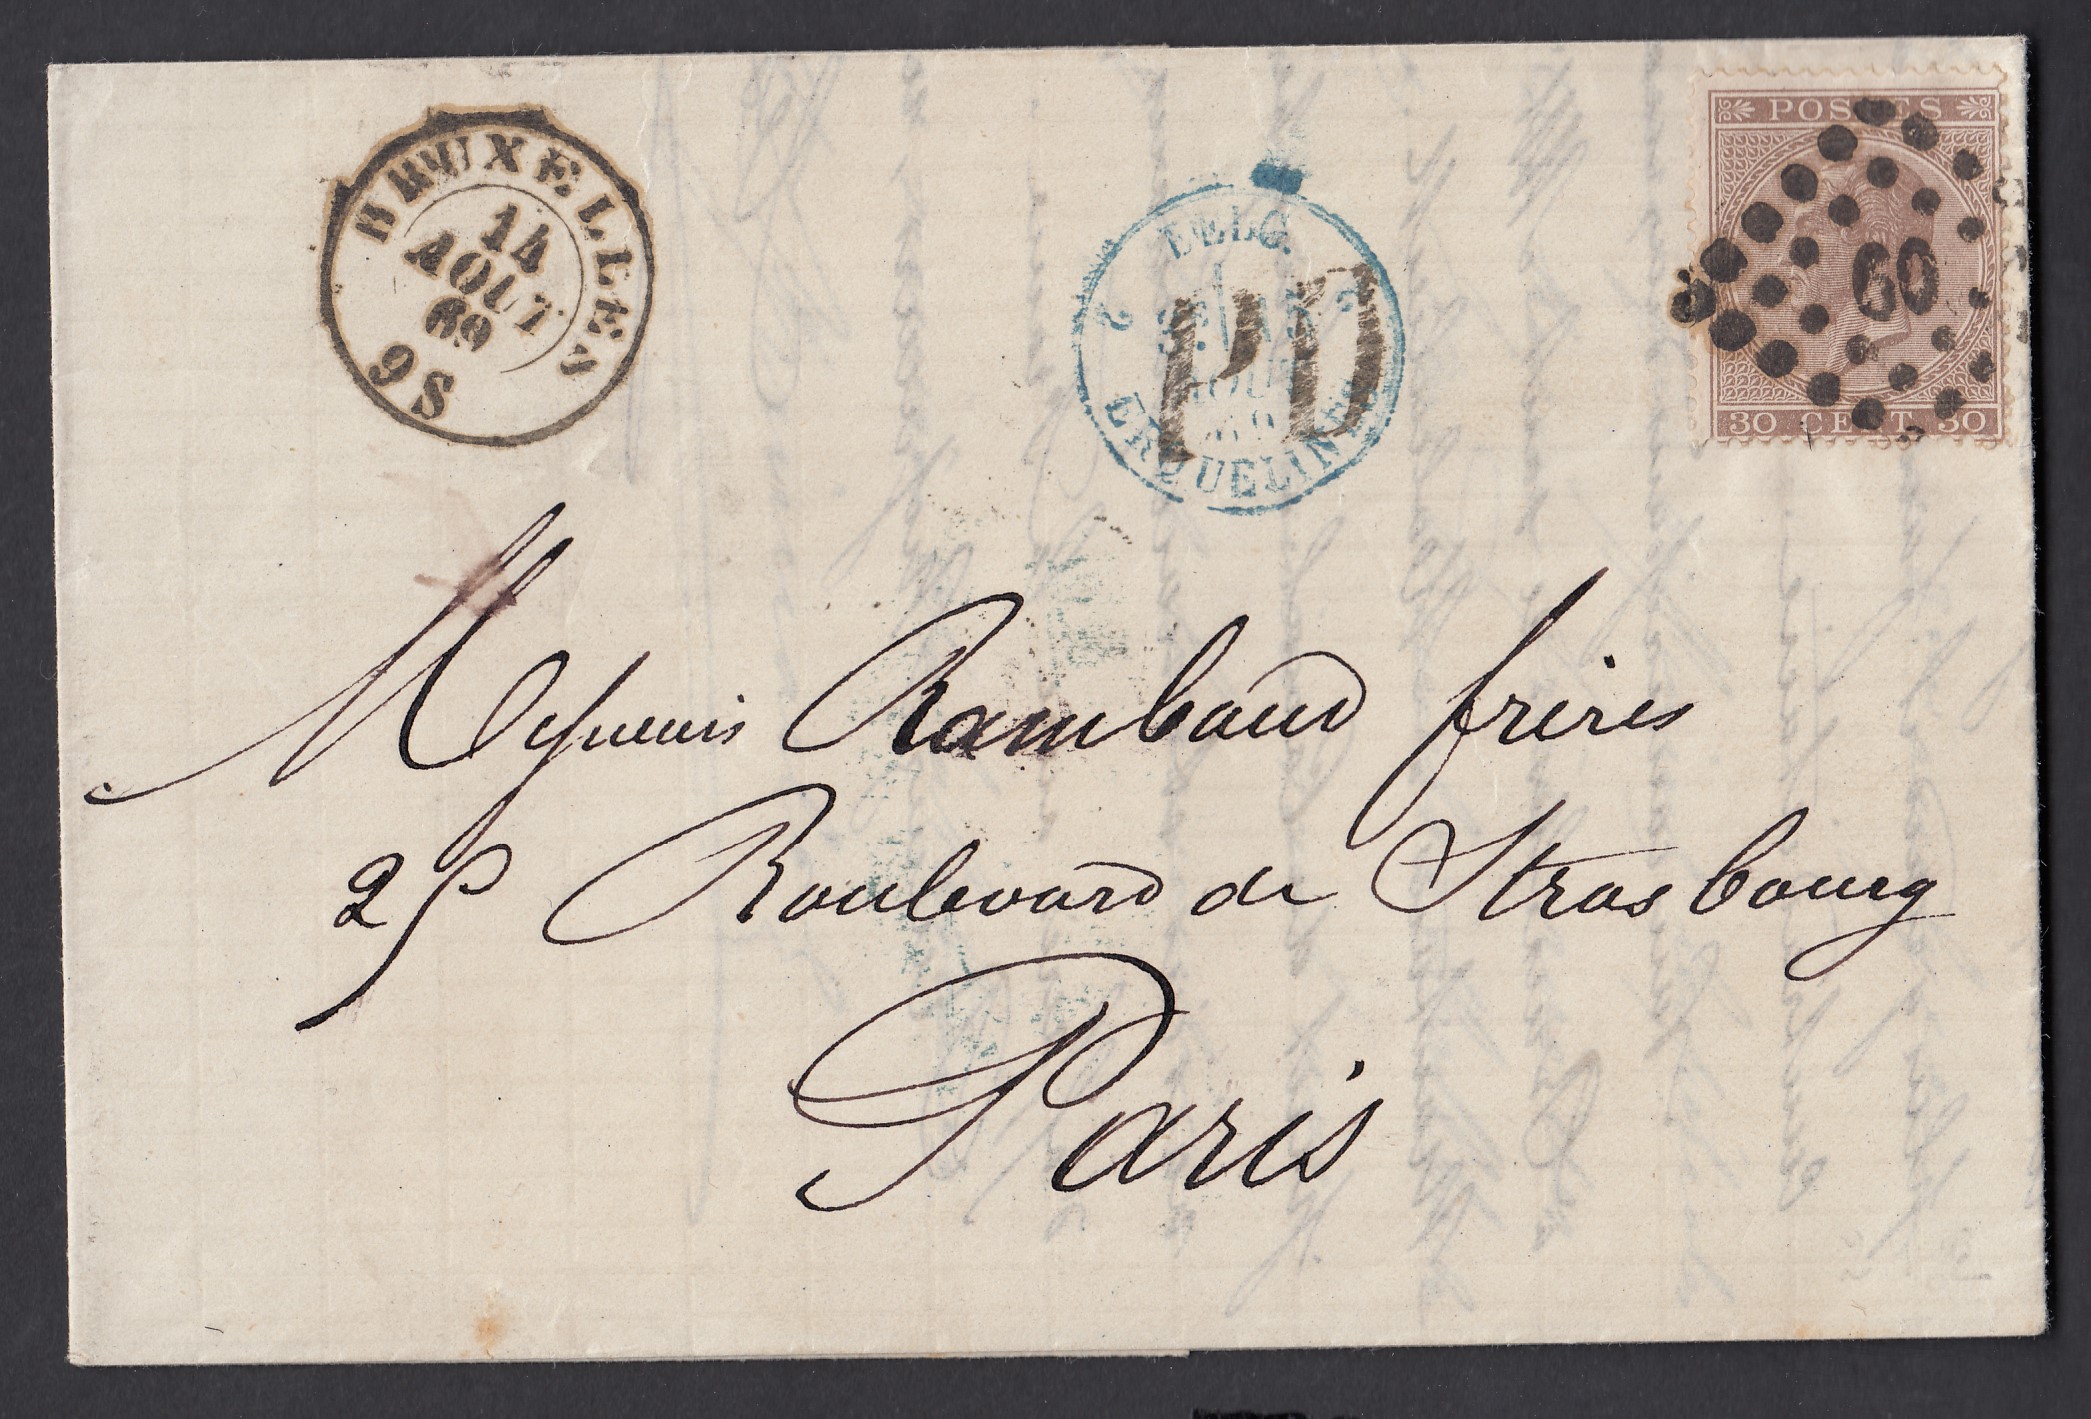 BRUXELLES
14
AOUT
69
9S
BELG.
2 2
AOUT
69
ERQUELINES
PD
POSTES
60
30 CENT 30
Messieurs Rambaud frères
25 Boulevard de Strasbourg
Paris